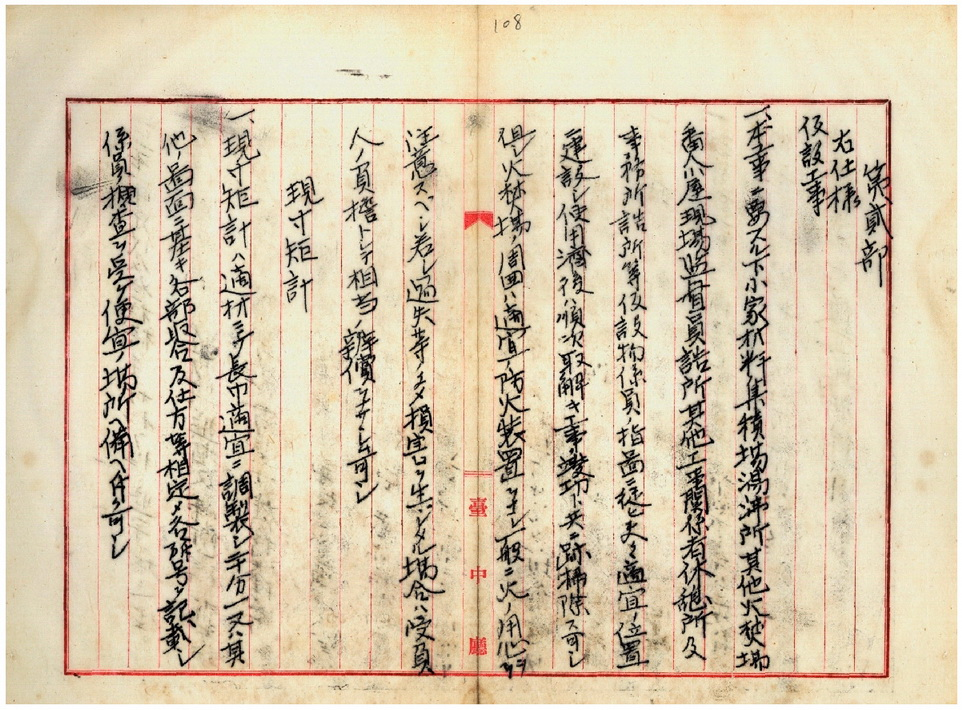 108
第貳部
右仕様
仮設工事
一、本事ニ要スル下小家材料集積場湯沸所其他火焚場
番人小屋現場監督員詰所其他工事関係者休憩所及
事務所詰所等仮設物係員ノ指圖ニ従ヒ夫々適宜ノ位置
建設シ使用濟後ハ順次取解キ工事竣功ト共ニ跡掃除スヘシ
但シ火焚場ノ周囲ハ適宜ノ防火装置ヲナシ一般ニ火ノ用心ヲ
注意スベシ若シ過失等ノ為メ損害ヲ生シタル場合ハ受負
人ノ負擔トシテ相当ノ辨償ヲナサシム可シ
現寸矩計
一、現寸矩計ハ適材ニテ長巾適宜ニ調製シ二十分一又ハ其
他ノ圖面ニ基キ各部取合及仕方等相定メ各符号ヲ記載シ
係員ノ檢査ヲ受ケ便宜ノ場所ヘ備ヘ付ク可シ
臺中廳